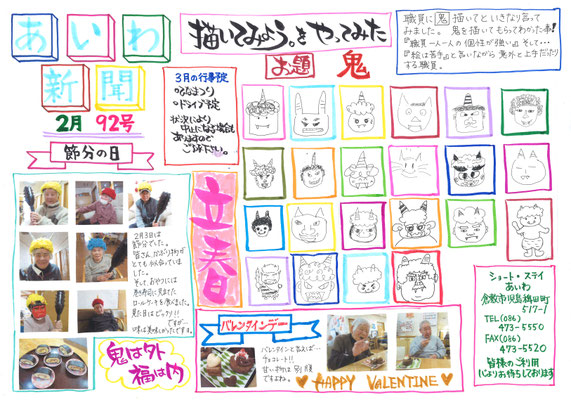 あいわ
新聞
2月 92号
描いてみよう。をやってみた
お題 鬼
職員に 鬼 描いてといきなり言って
みました。鬼を描いてもらってわかった事!
『職員一人一人の個性が強い』そして…
『絵は苦手』と言いながら意外と上手だったり
する職員。
3月の行事予定
・ひなまつり
・ドライブ予定
状況により
中止になる場合も
ありますので
ご了承下さい。
節分の日
2月3日は
節分でした。
皆さん、
とても似合っていま
した。
そして、おやつには
ロールケーキを食べました。
見た目はビックリ!!
ですが…
味は美味しかったです。
鬼は外
福は内
立春
バレンタインデー
バレンタインと言えば…
チョコレート!!
甘い物は別腹
ですよね。
HAPPY VALENTINE
ショート・ステイ
あいわ
倉敷市児島稗田町
517-1
TEL(086)
473-5550
FAX(086)
473-5520
皆様のご利用
心よりお待ちしております